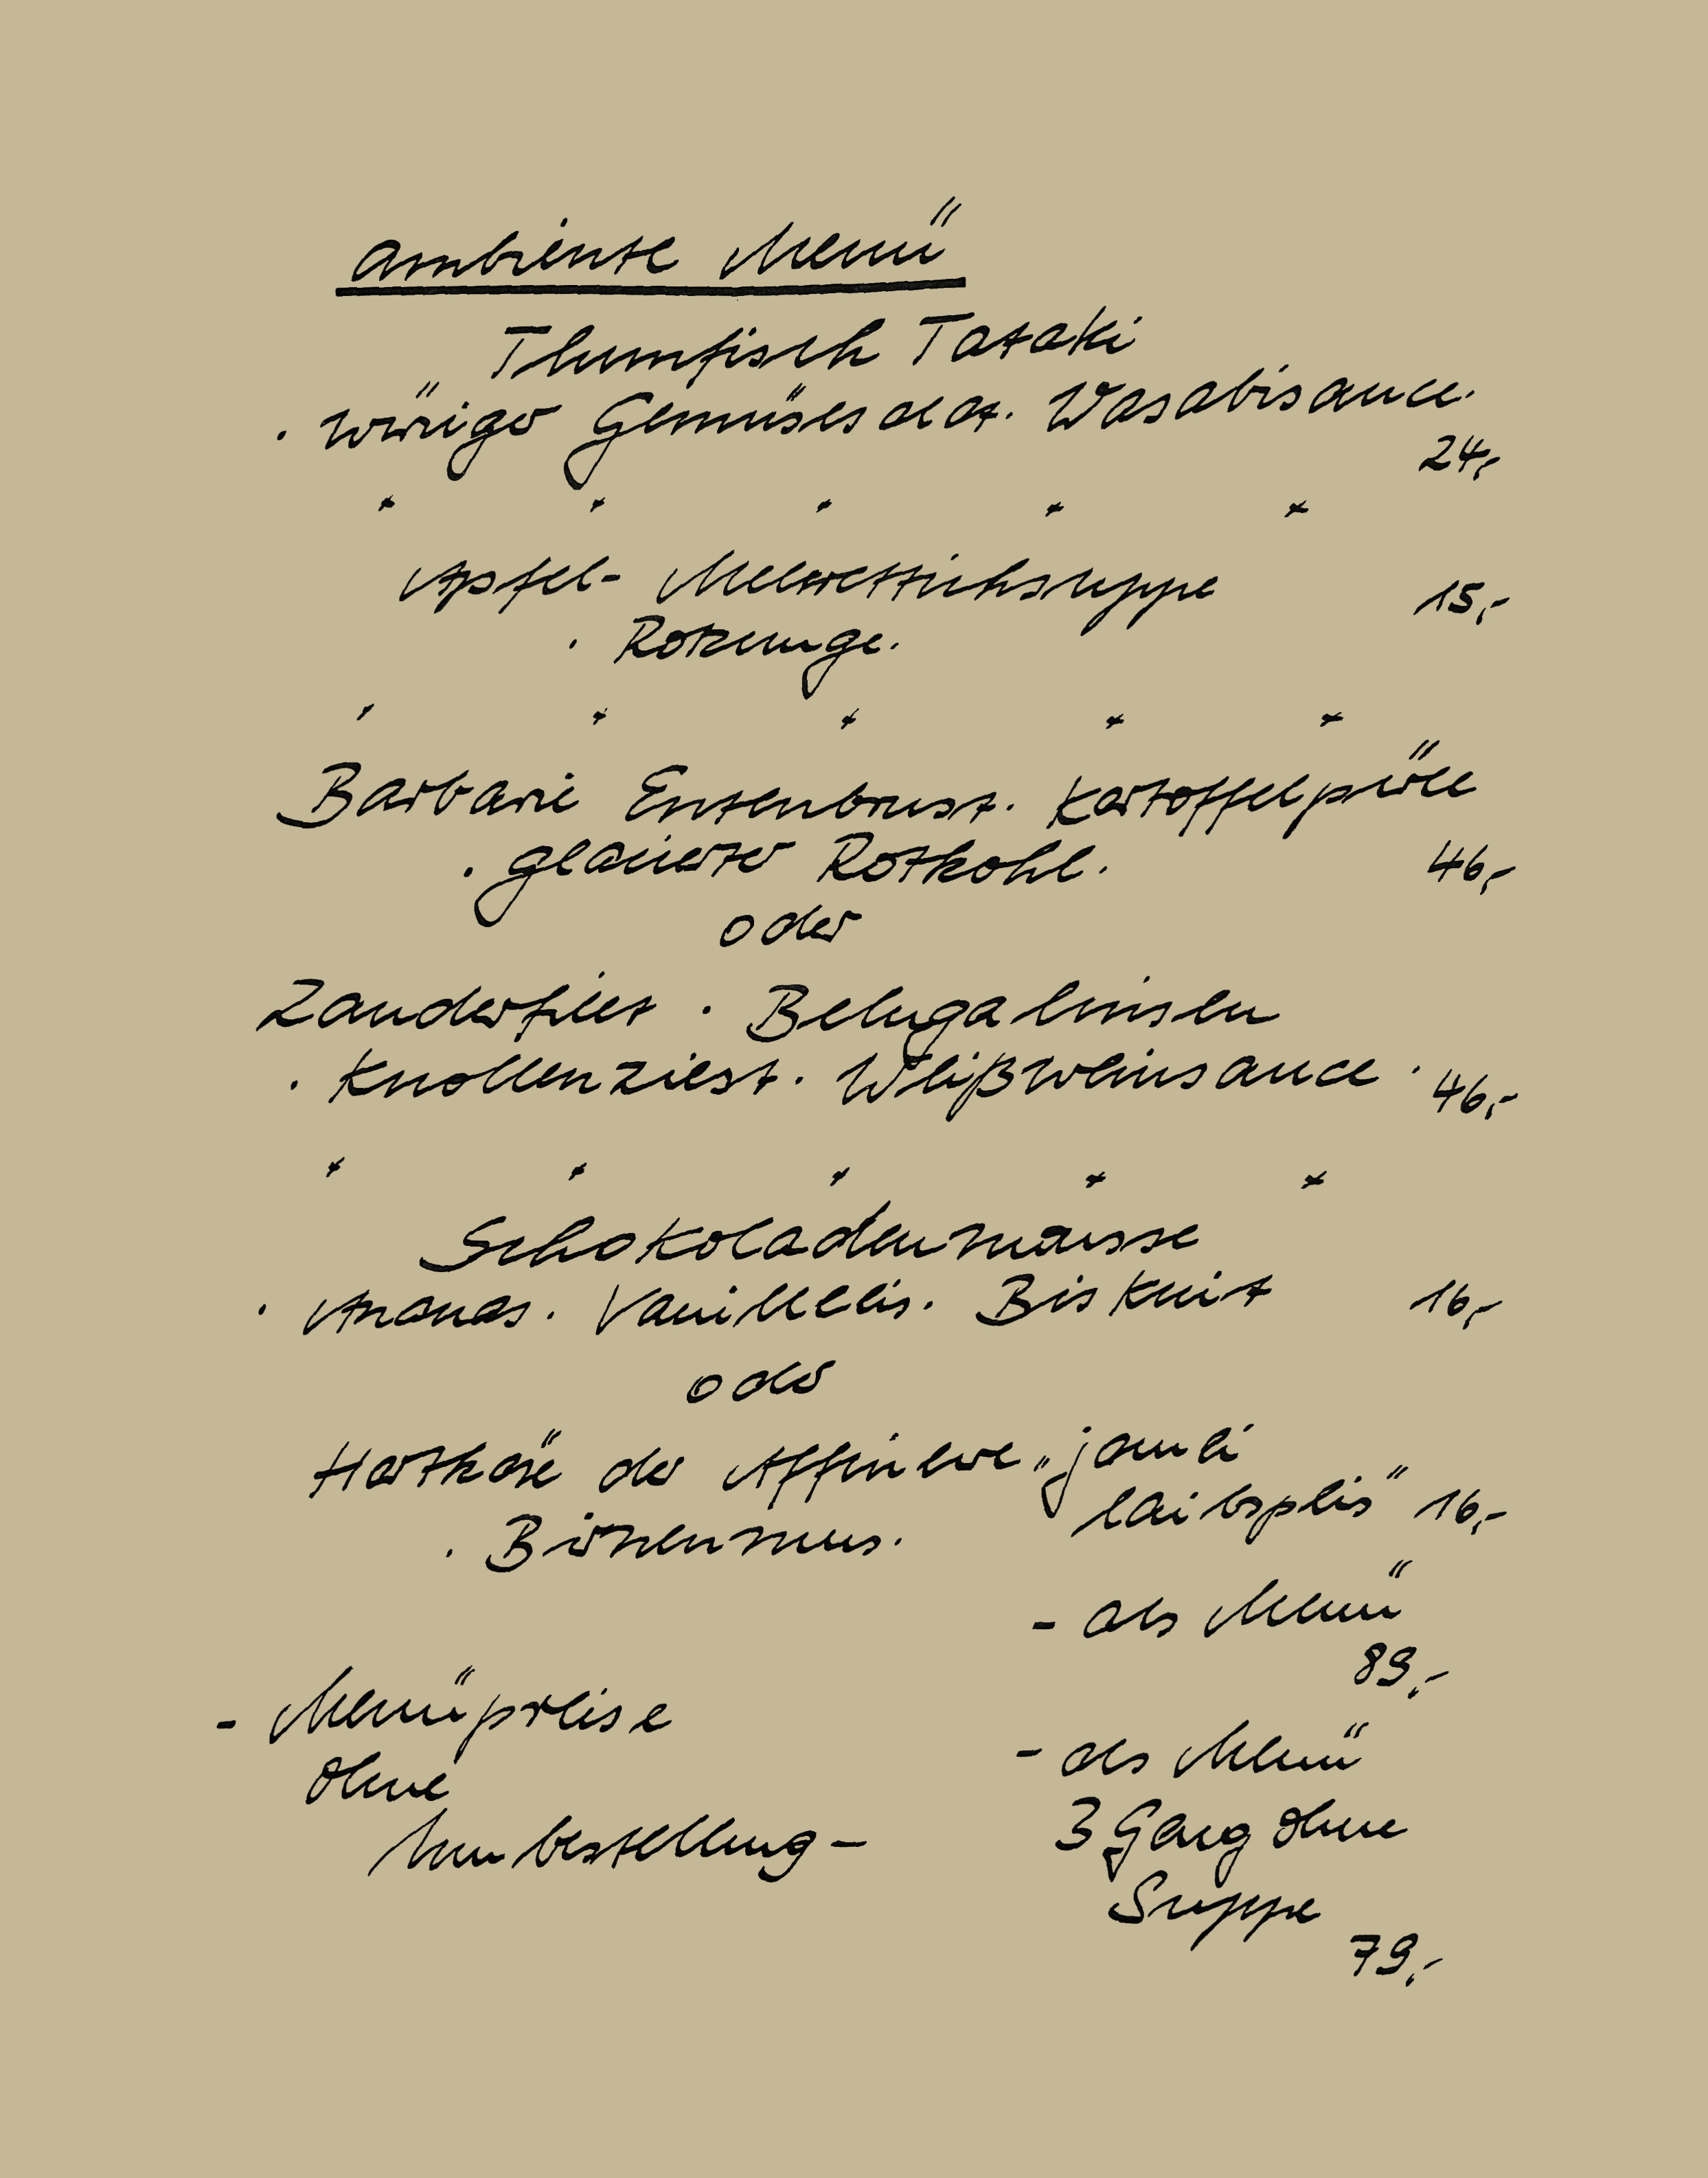 Ambiente Menü
Thunfisch Tataki
. würziger Gemüsesalat. Wasabisauce.
24,-
Apfel- Meerrettichsuppe 15,-
. Rotzunge.
Barbarie Entenbrust. Kartoffelpüree
. glacierter Rotkohl. 46,-
oder
Zanderfilet . Belugalinsen
. Knollenziest. Weißweinsauce . 46,-
Schokoladenmousse
. Ananas. Vanilleeis. Biskuit 16,-
oder
Hartkäse der Affineure „jamei
laibspeis" 16,-
. Birnenmus.
- als Menü
89,-
- Menüpreise
ohne
Umbestellung -
- als Menü
3 Gang ohne
Suppe
79,-